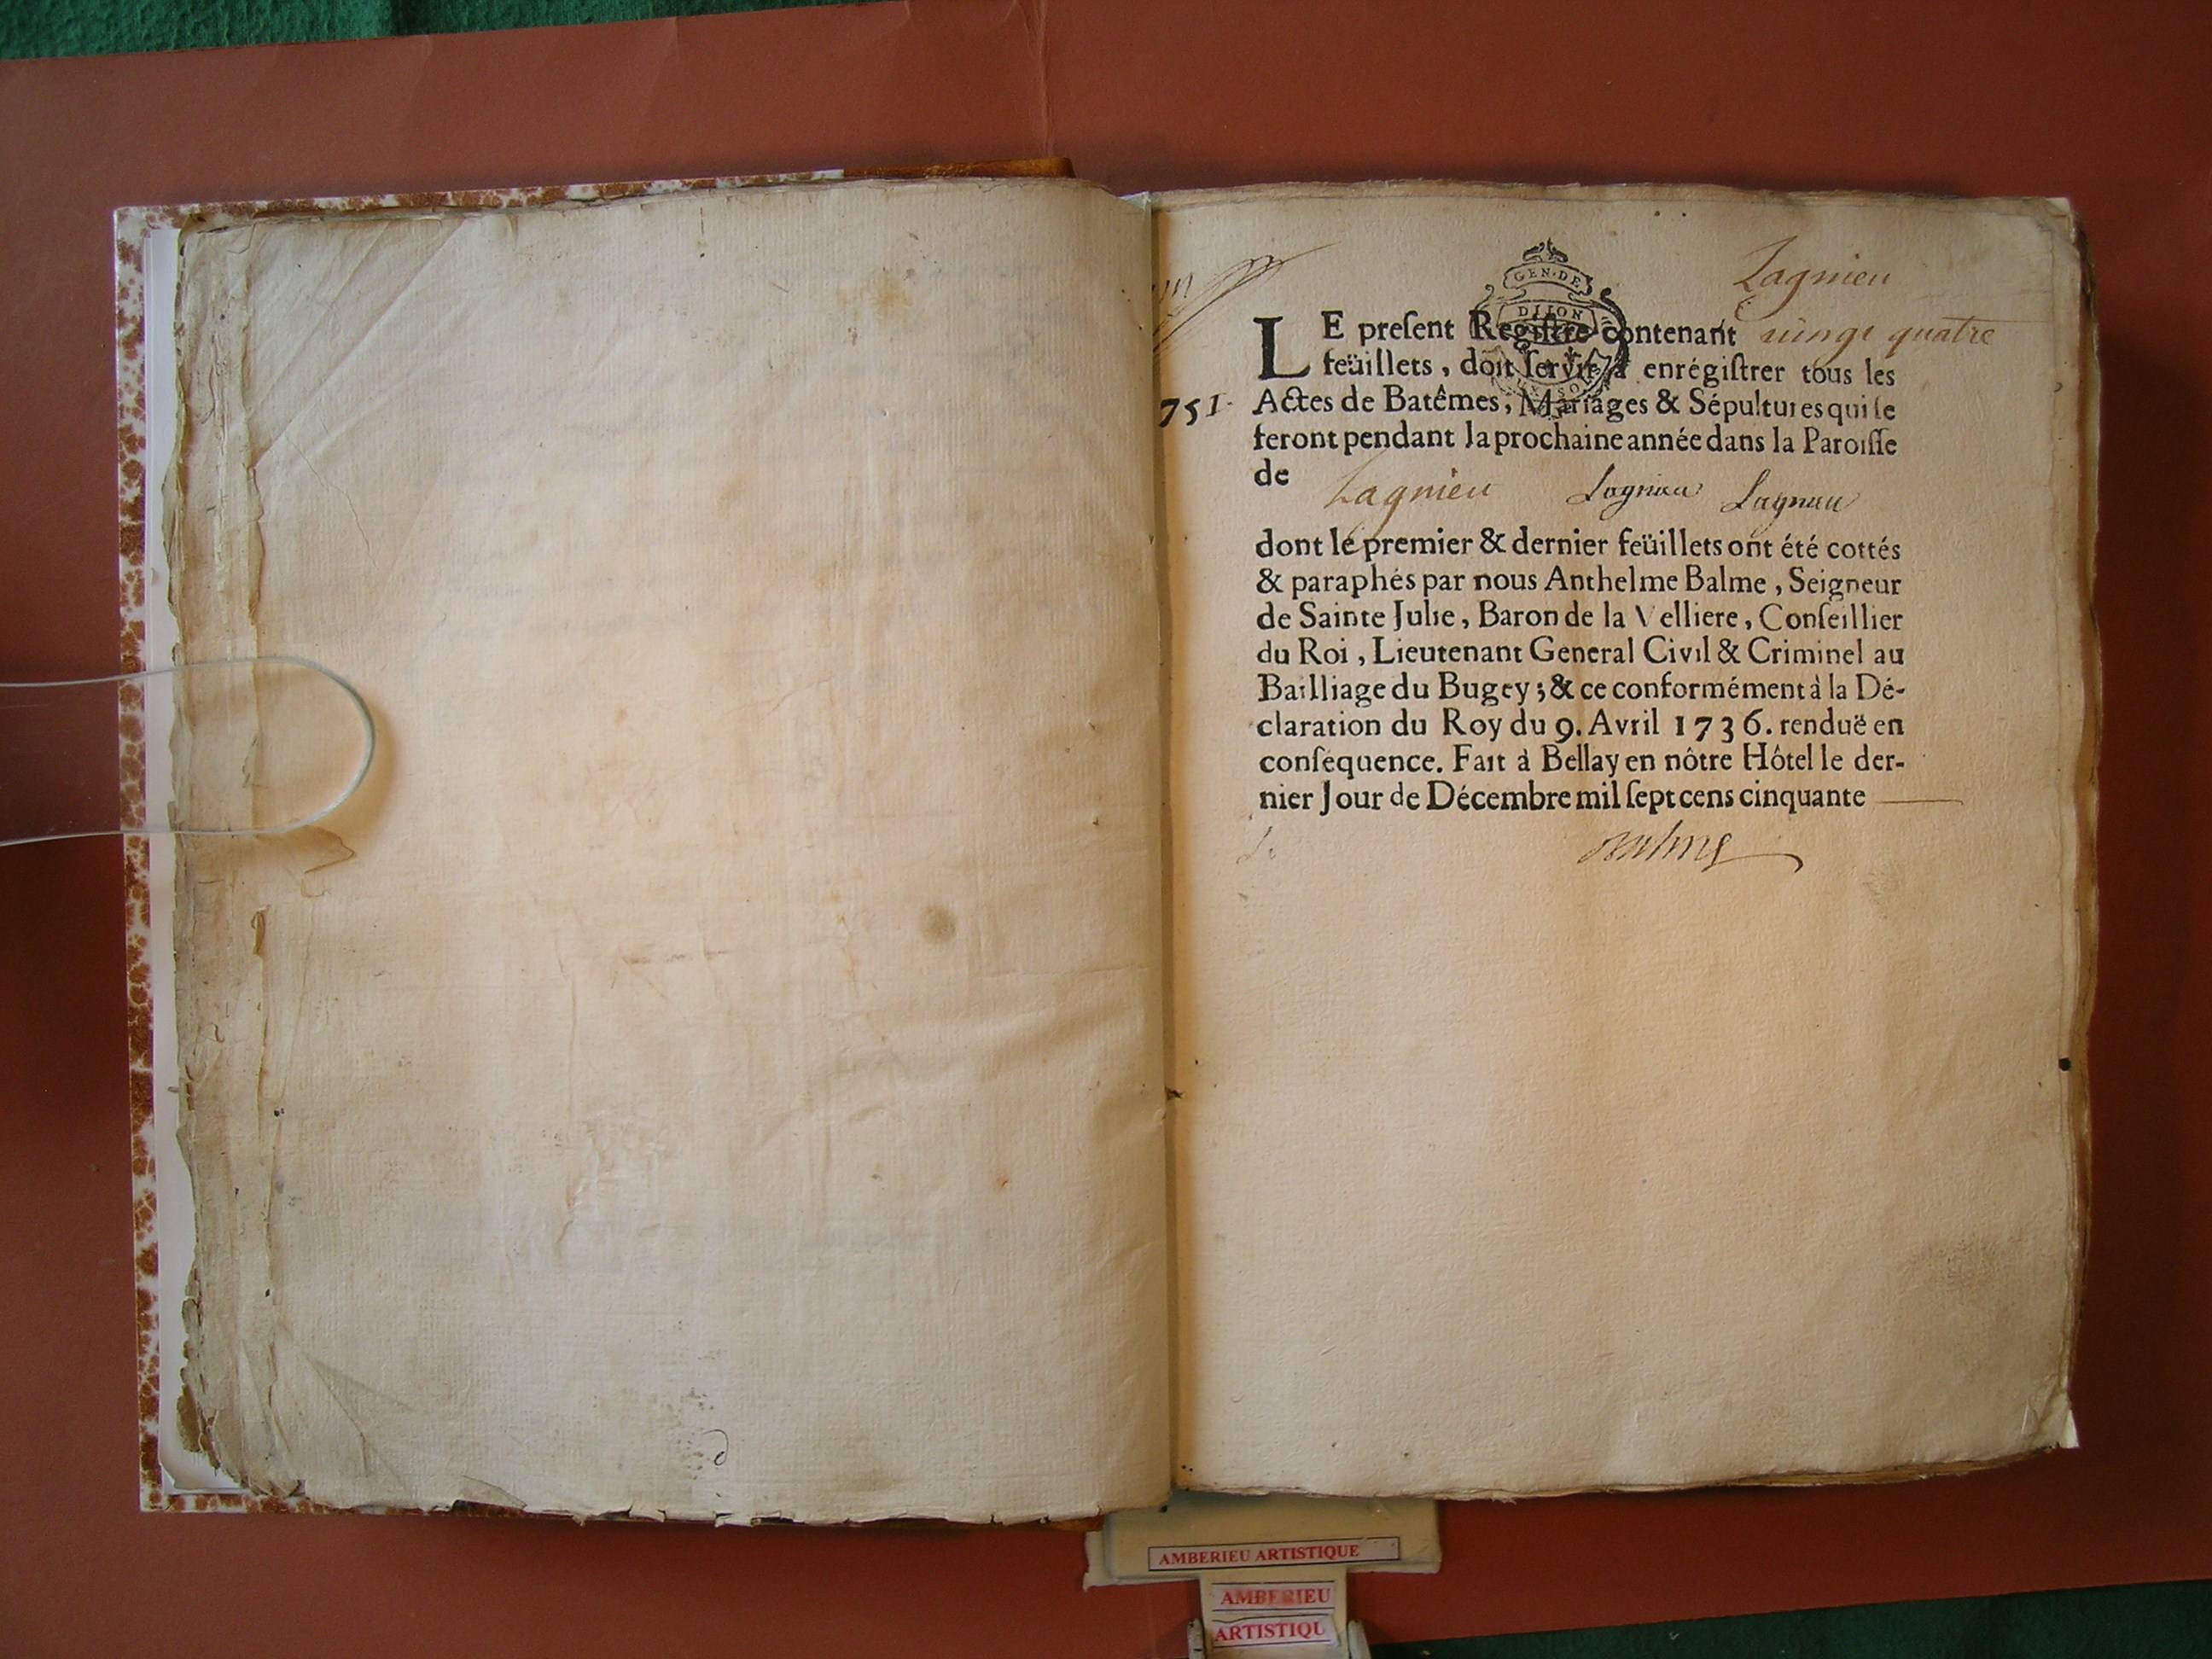 Lagnieu
GEN·DE
DIJON
LE preſent Regiſtre contenant vingt quatre
feüillets, doit ſervir à enrégiſtrer tous les
751. Actes de Batêmes, Mariages & Sépultures qui ſe
feront pendant la prochaine année dans la Paroiſſe
de
Lagnieu Lagnieu Lagnieu
dont le premier & dernier feüillets ont été cottés
& paraphés par nous Anthelme Balme, Seigneur
de Sainte Julie, Baron de la Velliere, Conſeillier
du Roi, Lieutenant General Civil & Criminel au
Bailliage du Bugey; & ce conformément à la Dé-
claration du Roy du 9. Avril 1736. renduë en
conſéquence. Fait à Bellay en nôtre Hôtel le der-
nier Jour de Décembre mil ſept cens cinquante
Balme
AMBERIEU ARTISTIQUE
AMBERIEU
ARTISTIQU